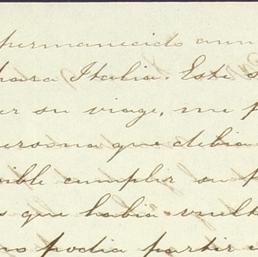 permanecido aun
para Italia. Este s
er su viage, me p
ersona que debia
ible cumplir su p
s que habia vuelt
no podia partir